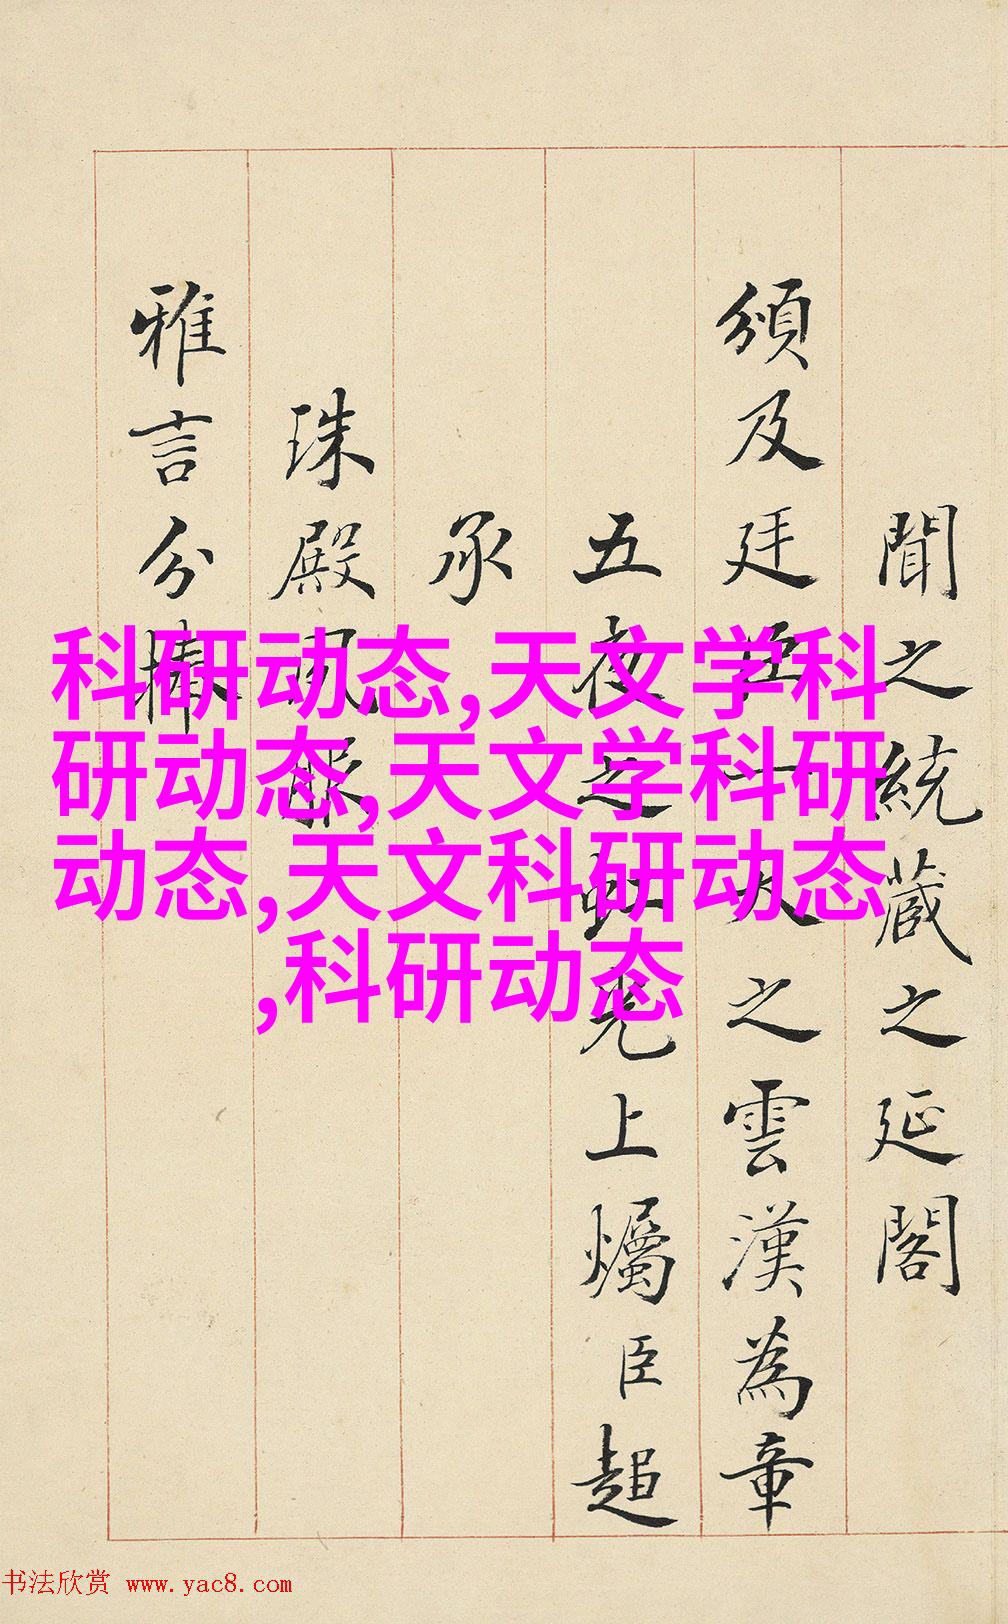 聞之統藏之延閣
頒及廷臣一天之雲漢為章
五夜之虹光上燭臣超
承
珠殿夙服
雅言分捧
科研动态,天文学科
研动态,天文学科研
动态,天文科研动态
,科研动态
书法欣赏 www.yac8.com